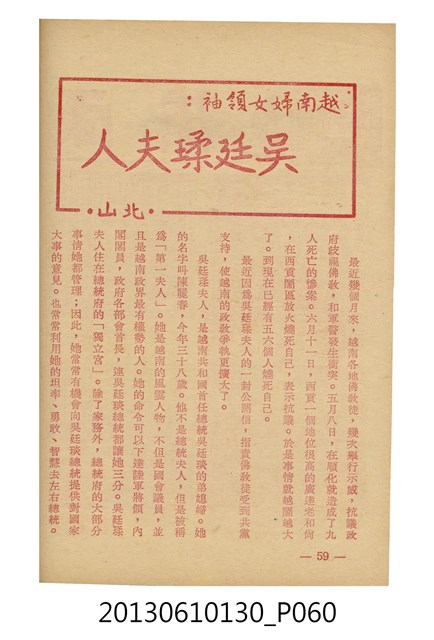 越南婦女領袖：
吴廷瑈夫人
•北山•
最近幾個月來，越南各地佛敎徒，幾次舉行示威，抗議政
府歧視佛敎，和軍警發生衝突。五月八日，在順化就造成了九
人死亡的慘案。六月十一日，西貢一個地位很高的廣達老和尙
，在西貢鬧區放火燒死自己，表示抗議。於是事情就越鬧越大
了。到現在已經有五六個人燒死自己。
最近因爲吳廷瑈夫人的一封公開信，指責佛敎徒受到共黨
支持，使越南的政敎爭執更擴大了。
吳廷瑈夫人，是越南共和國首任總統吳廷琰的弟媳婦。她
的名字叫陳麗春，今年三十八歲。他不是總統夫人，但是被稱
爲「第一夫人」。她是越南的風雲人物，不但是國會議員，並
且是越南政界最有權勢的人。她的命令可以下達陸軍將領，內
閣閣員，政府各部會首長，連吳廷琰總統都讓她三分。吳廷瑈
夫人住在總統府的「獨立宮」。除了家務外，總統府的大部分
事情她都管理；因此，她常常有機會向吳廷琰總統提供對國家
大事的意見。也常常利用她的坦率、勇敢、智慧去左右總統。
— 59 —
20130610130_P060